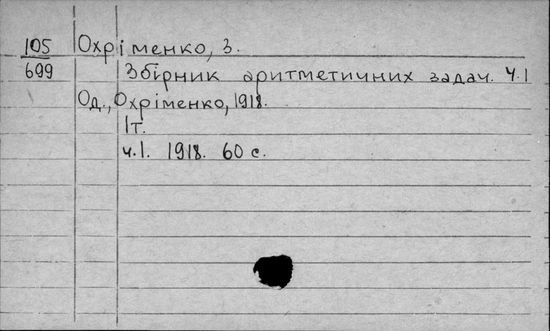 105 Охріменко, З.
699 Збірник аритметичних задач. Ч.1
Од., Охріменко, 1918.
1т.
ч.1. 1918. 60 с.